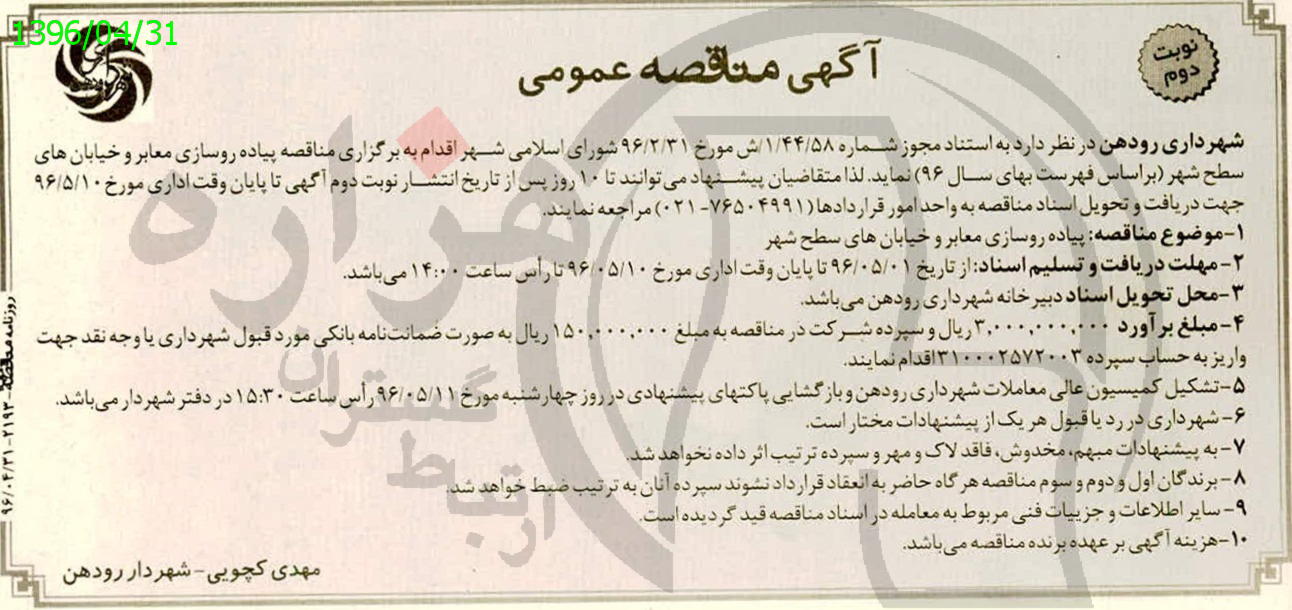 1396/04/31
نوبت
دوم
آگهی مناقصه عمومی
شهرداری رودهن در نظر دارد به استناد مجوز شماره ۱/۴۴/۵۸/ش مورخ ۹۶/۲/۳۱ شورای اسلامی شهر اقدام به برگزاری مناقصه پیاده روسازی معابر و خیابان های
سطح شهر (براساس فهرست بهای سال ۹۶) نماید. لذا متقاضیان پیشنهاد می‌توانند تا ۱۰ روز پس از تاریخ انتشار نوبت دوم آگهی تا پایان وقت اداری مورخ ۹۶/۵/۱۰
جهت دریافت و تحویل اسناد مناقصه به واحد امور قراردادها (۷۶۵۰۴۹۹۱-۰۲۱) مراجعه نمایند.
۱-موضوع مناقصه: پیاده روسازی معابر و خیابان های سطح شهر
۲- مهلت دریافت و تسلیم اسناد: از تاریخ ۹۶/۰۵/۰۱ تا پایان وقت اداری مورخ ۹۶/۰۵/۱۰ تا رأس ساعت ۱۴:۰۰ می‌باشد.
۳-محل تحویل اسناد دبیرخانه شهرداری رودهن می‌باشد.
۴-مبلغ برآورد ۳,۰۰۰,۰۰۰,۰۰۰ ریال و سپرده شرکت در مناقصه به مبلغ ۱۵۰,۰۰۰,۰۰۰ ریال به صورت ضمانت‌نامه بانکی مورد قبول شهرداری یا وجه نقد جهت
واریز به حساب سپرده ۳۱۰۰۰۲۵۷۲۰۰۳ اقدام نمایند.
۵-تشکیل کمیسیون عالی معاملات شهرداری رودهن و بازگشایی پاکتهای پیشنهادی در روز چهارشنبه مورخ ۹۶/۰۵/۱۱ رأس ساعت ۱۵:۳۰ در دفتر شهردار می‌باشد.
۶-شهرداری در رد یا قبول هر یک از پیشنهادات مختار است.
۷- به پیشنهادات مبهم، مخدوش، فاقد لاک و مهر و سپرده ترتیب اثر داده نخواهد شد.
۸- برندگان اول و دوم و سوم مناقصه هرگاه حاضر به انعقاد قرارداد نشوند سپرده آنان به ترتیب ضبط خواهد شد.
۹- سایر اطلاعات و جزییات فنی مربوط به معامله در اسناد مناقصه قید گردیده است.
۱۰-هزینه آگهی بر عهده برنده مناقصه می‌باشد.
مهدی کچویی- شهردار رودهن
روزنامه مناقصه- ۲۱۹۳- ۹۶/۰۴/۳۱
هزاره
گستران
ارتباط